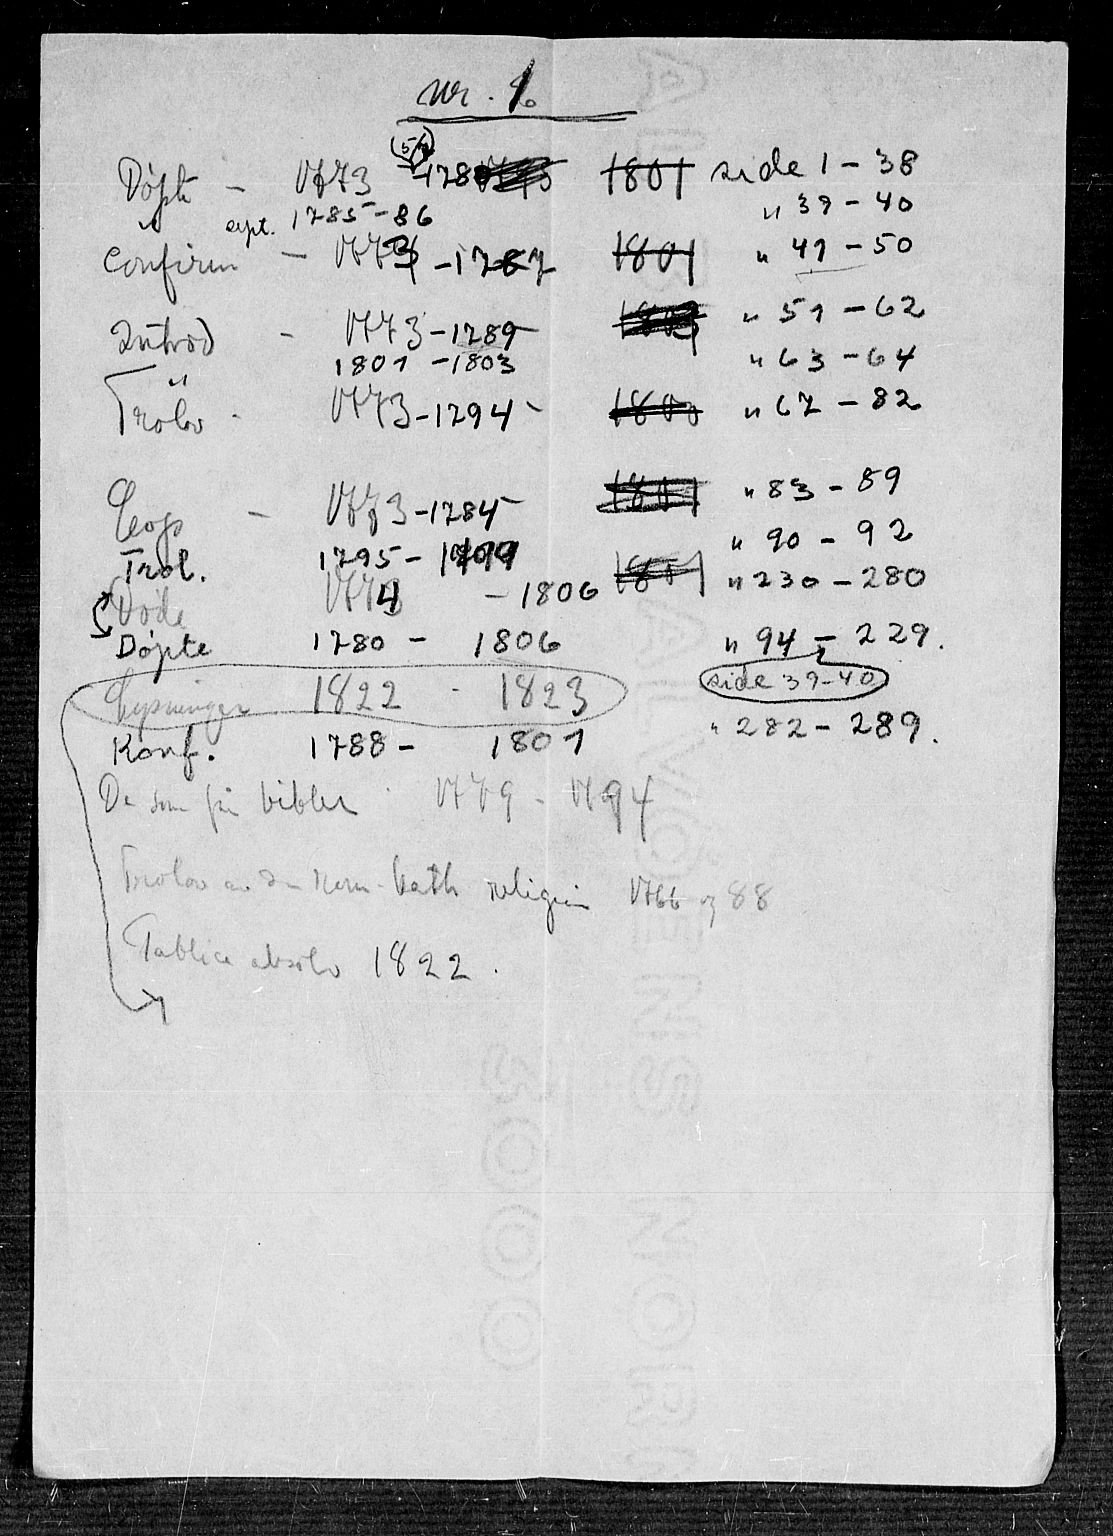 nr. 6
(5/7)
Döpte - 1773 - 1780 1801 side 1 - 38
" expt. 1785-86 " 39 - 40
Confirm - 1773 - 1787 1801 " 41 - 50
Introd - 1773 - 1789 1803 " 51 - 62
" 1801 - 1803 " 63 - 64
Trolov - 1773 - 1794 1800 " 67 - 82
Cop - 1773 - 1784 1801 " 83 - 89
Trol. 1795 - 1799 " 90 - 92
Döde 1774 - 1806 1801 " 230 - 280
Döpte 1780 - 1806 " 94 - 229.
Lysninger 1822 - 1823 side 39-40
Konf. 1788 - 1801 " 282 - 289.
De som får bibler 1779 - 1794
Trolov religion 1766 og 88
Publice absolv 1822.